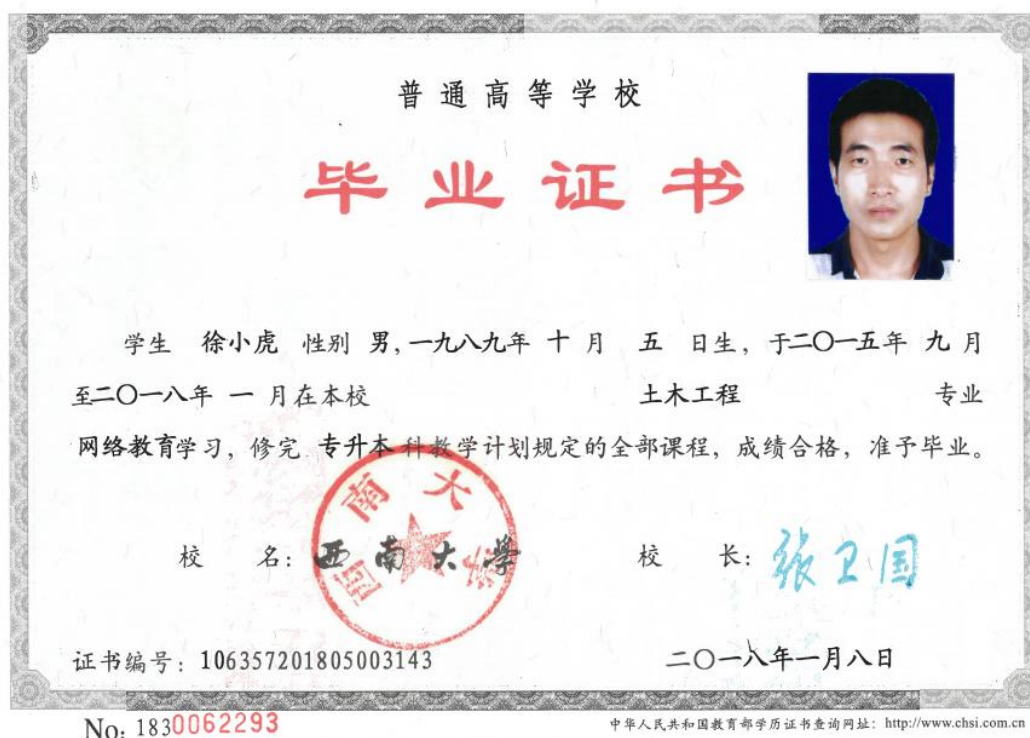 普通高等学校
毕业证书
学生 徐小虎 性别 男，一九八九年 十 月 五 日生，于二〇一五年 九 月
至二〇一八年 一 月在本校 土木工程 专业
网络教育学习，修完 专升本 科教学计划规定的全部课程，成绩合格，准予毕业。
校 名：西南大学 校 长：张卫国
西南大学
证书编号：106357201805003143 二〇一八年一月八日
No: 1830062293 中华人民共和国教育部学历证书查询网址：http://www.chsi.com.cn